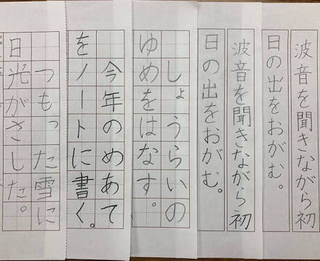 波音を聞きながら初
日の出をおがむ。
波音を聞きながら初
日の出をおがむ。
しょうらいの
ゆめをはなす。
今年のめあて
をノートに書く。
つもった雪に
日光がさした。